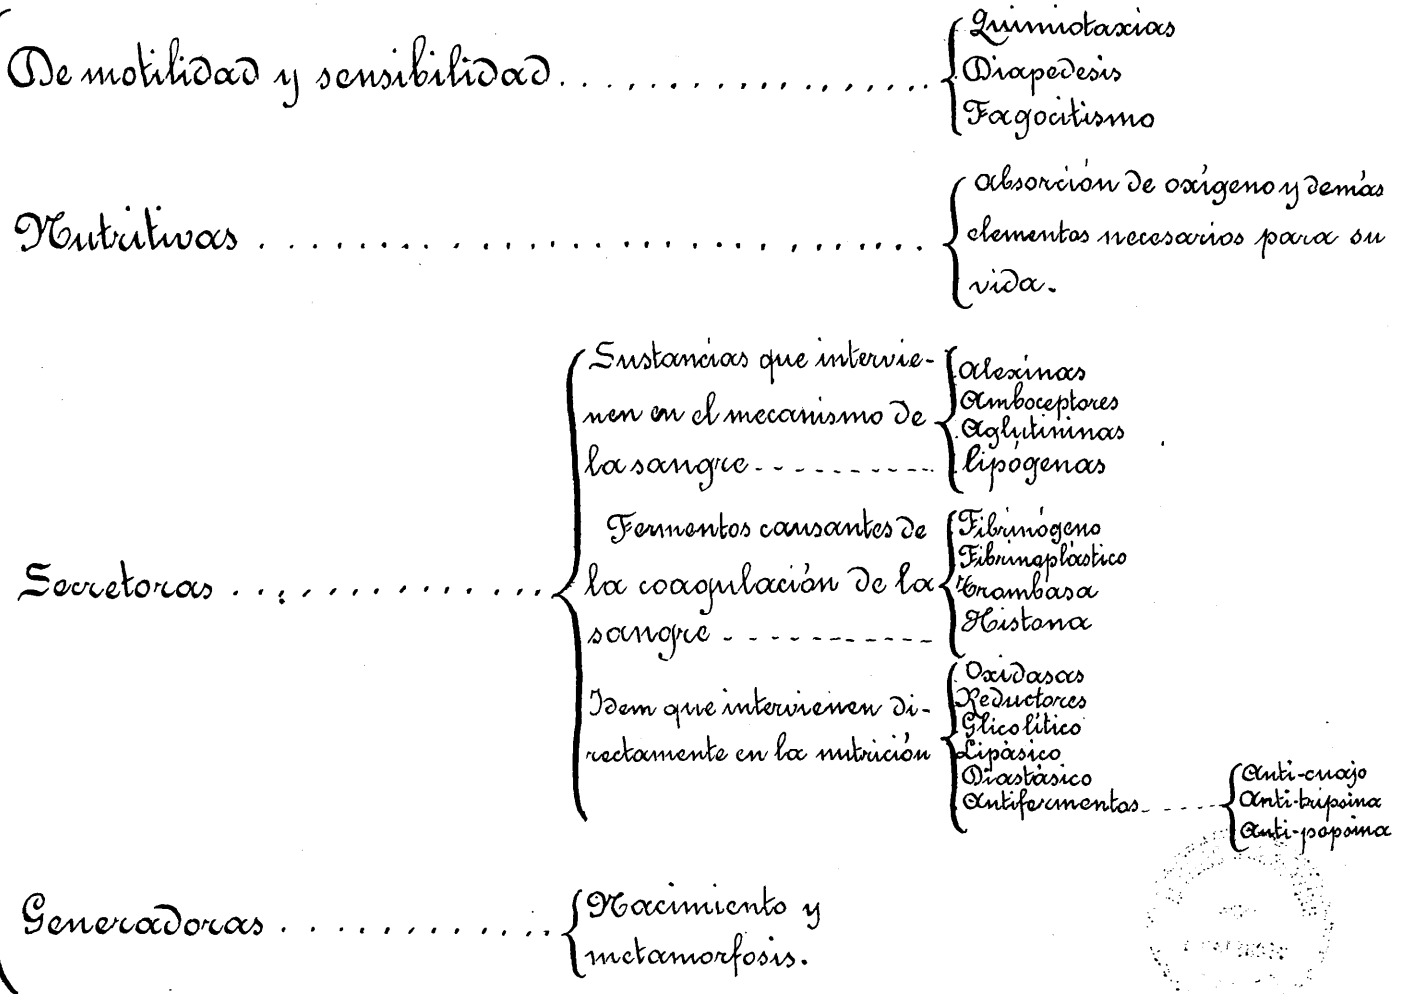 De motilidad y sensibilidad
Quimiotaxias
Diapedesis
Fagocitismo
Nutritivas
absorción de oxígeno y demás
elementos necesarios para su
vida.
Secretoras
Sustancias que intervie-
nen en el mecanismo de
la sangre
Alexinas
Amboceptores
Aglutininas
lipógenas
Fermentos causantes de
la coagulación de la
sangre
Fibrinógeno
Fibrinaplástico
Trombasa
Histona
Idem que intervienen di-
rectamente en la nutrición
Oxidasas
Reductores
Glicolítico
Lipásico
Diastásico
Antifermentos
Anti-cuajo
Anti-tripsina
Anti-pepsina
Generadoras
Nacimiento y
metamorfosis.